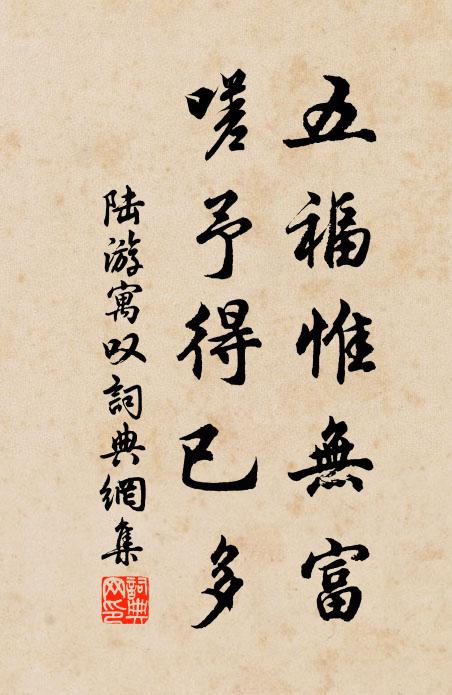 五福惟無富
嗟予得已多
陆游寓叹詞典網集
詞典
网印